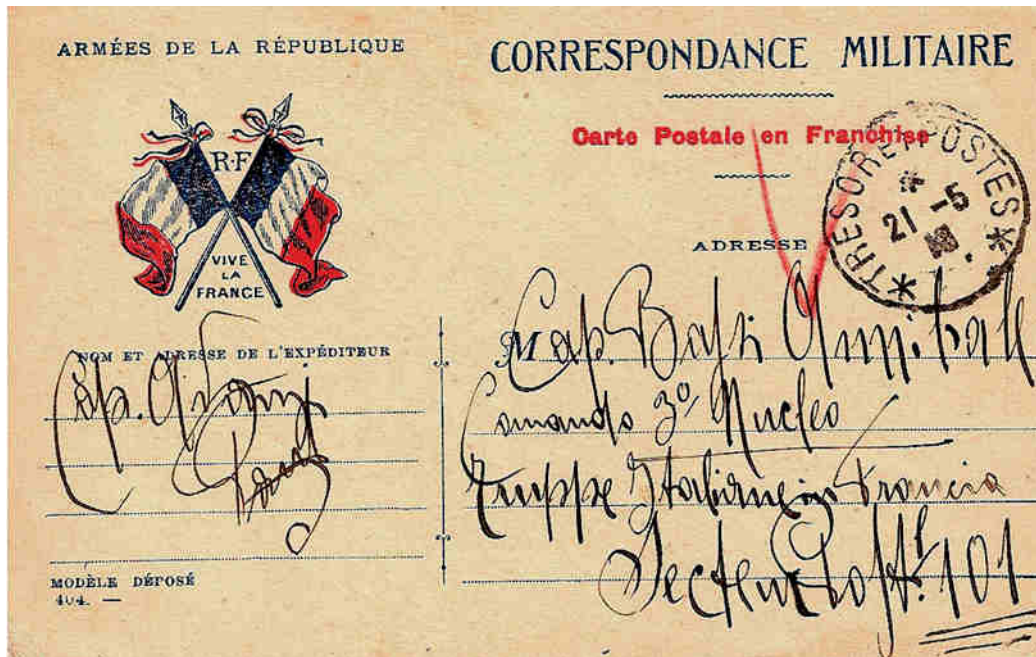 ARMÉES DE LA RÉPUBLIQUE
R·F
VIVE
LA
FRANCE
NOM ET ADRESSE DE L'EXPÉDITEUR
Cap.
MODÈLE DÉPOSÉ
404. —
CORRESPONDANCE MILITAIRE
Carte Postale en Franchise
TRESOR ET POSTES
21 -5
ADRESSE
M Cap.
Comando 3º Nucleo
Truppe Italiane in Francia
Secteur Post. 101